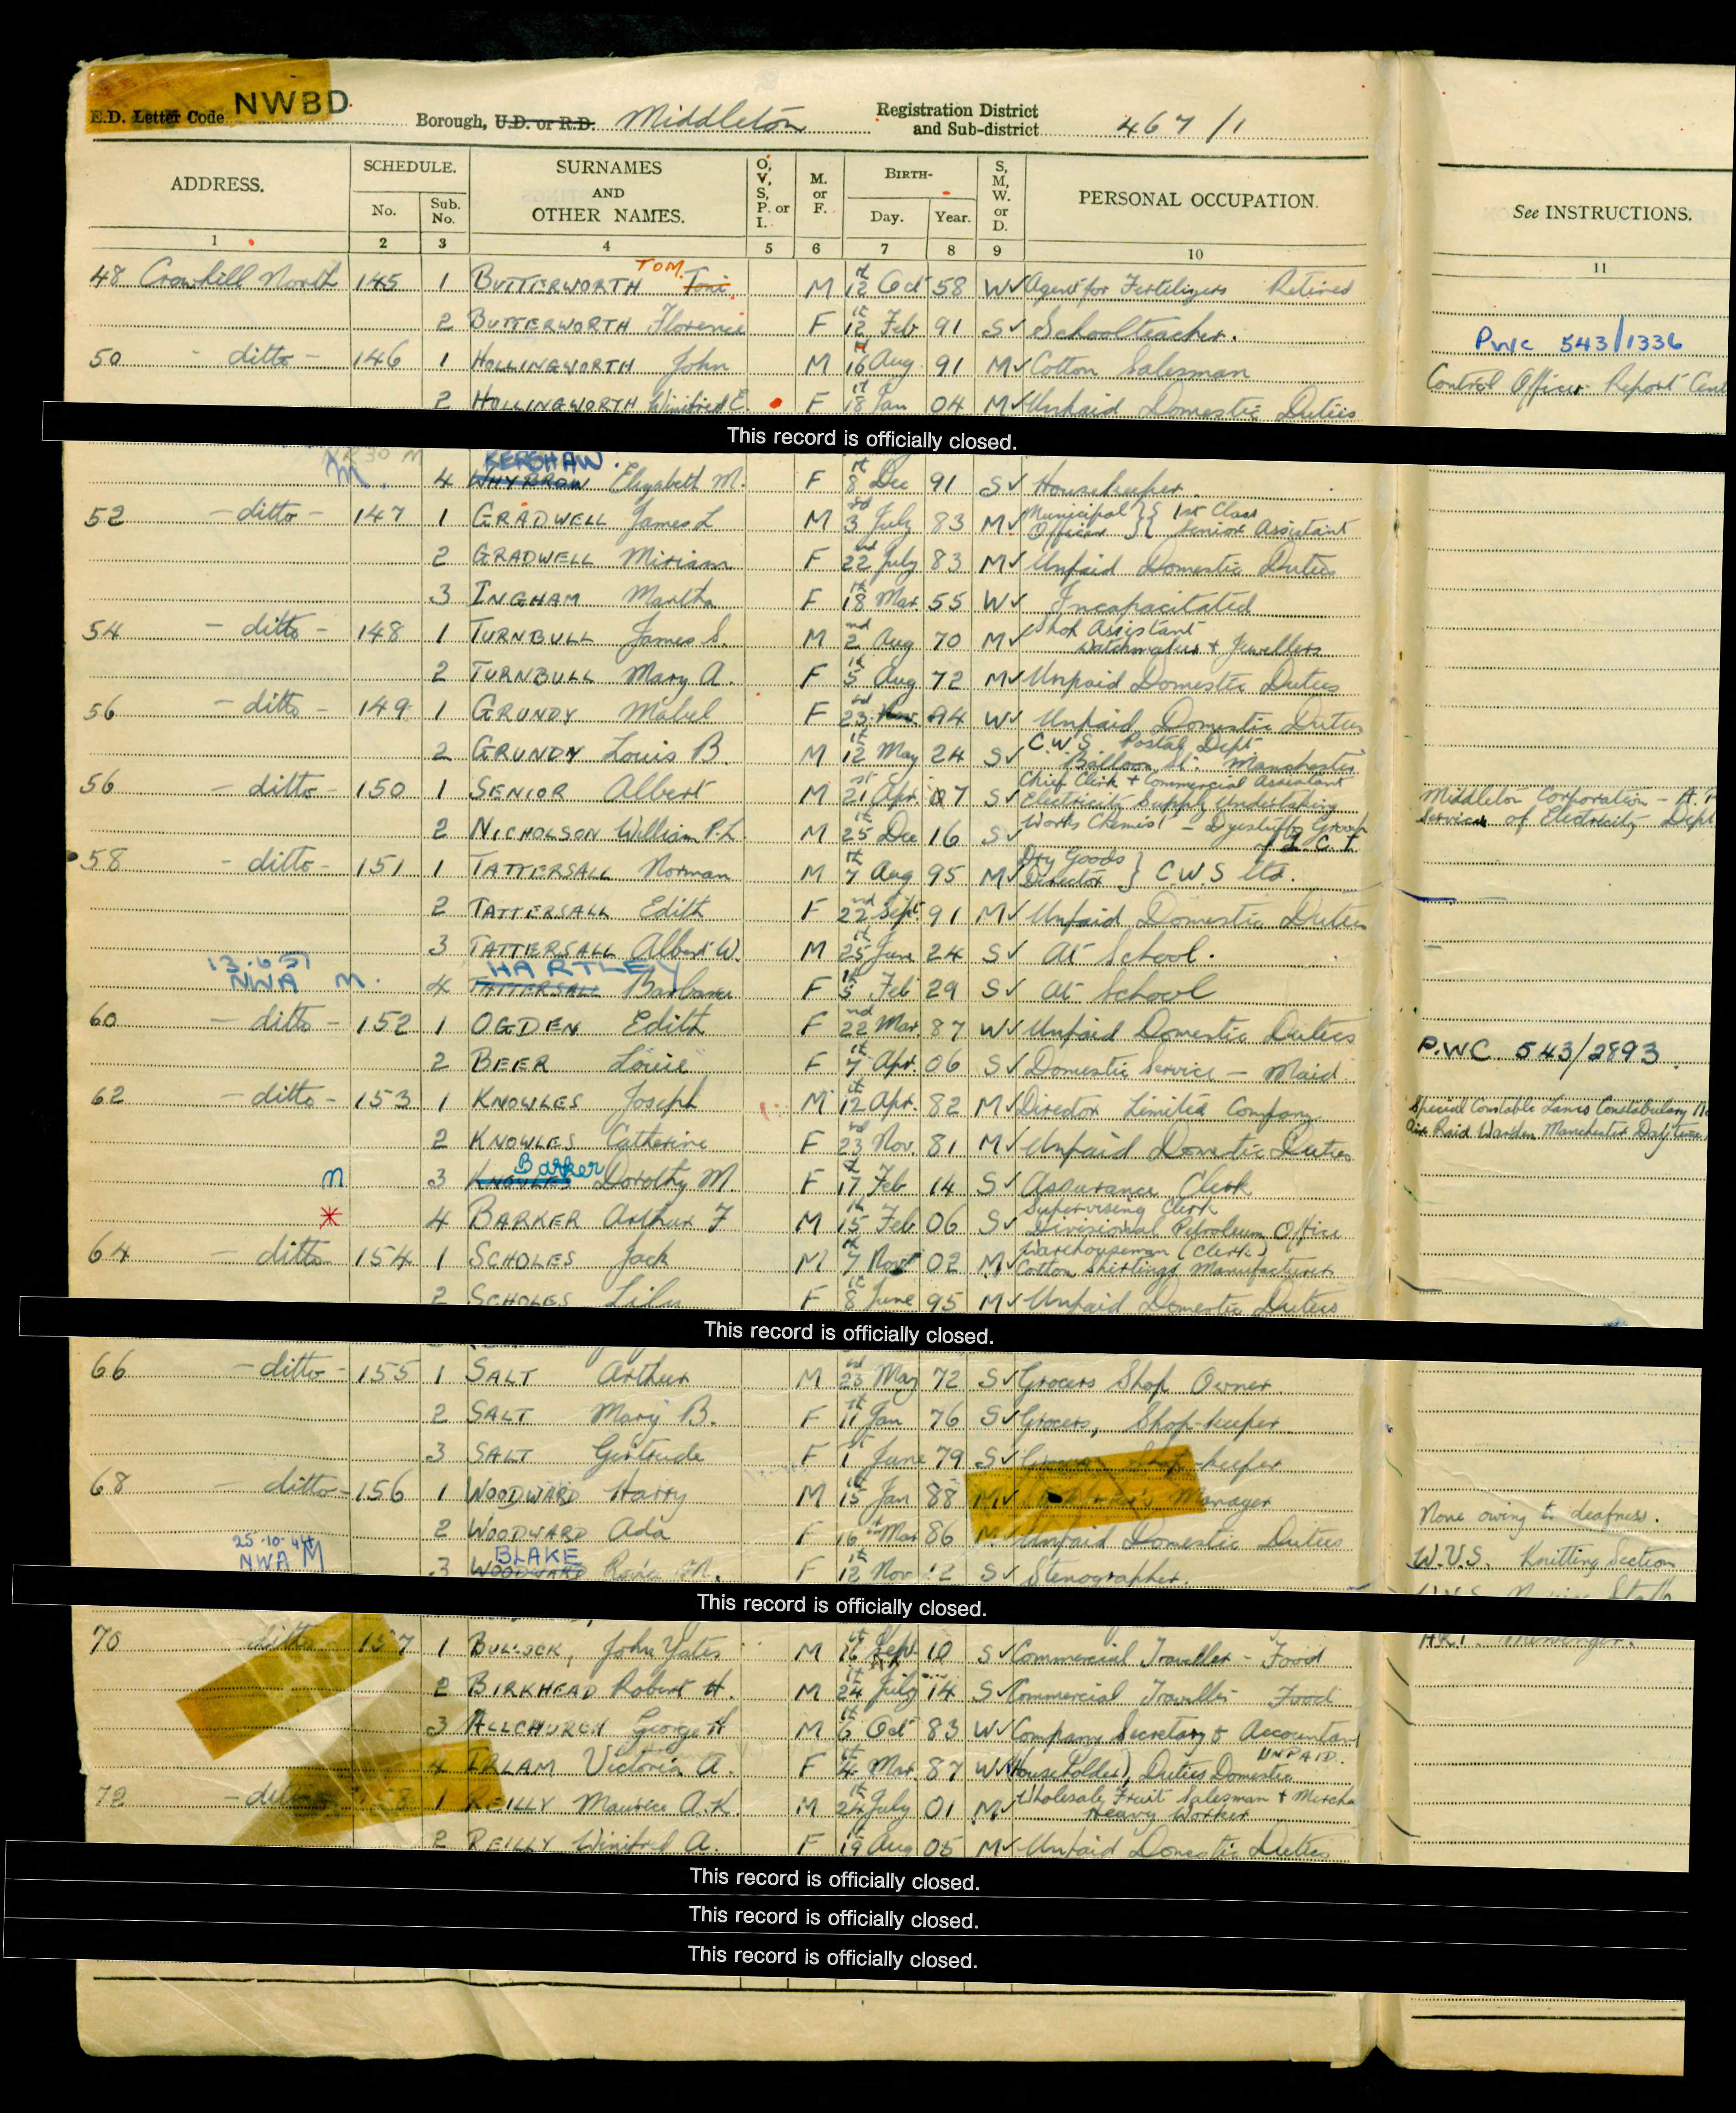 E.D. Letter Code NWBD. Borough, U.D. or R.D. Middleton Registration District and Sub-district 467/1
ADDRESS. SCHEDULE. No. Sub. No. SURNAMES AND OTHER NAMES. O, V, S, P. or I. M. or F. BIRTH- Day. Year. S, M, W. or D. PERSONAL OCCUPATION. See INSTRUCTIONS.
1 2 3 4 5 6 7 8 9 10 11
TOM.
48 Crowhill North 145 1 BUTTERWORTH M 12th Oct 58 W Agent for Fertilizers Retired
2 BUTTERWORTH Florence F 12th Feb 91 S Schoolteacher.
PWC 543/1336
50 - ditto - 146 1 HOLLINGWORTH John M 16 Aug 91 M Cotton Salesman Control Officer Report Cent
2 HOLLINGWORTH Winifred E. F 18th Jan 04 M Unpaid Domestic Duties
This record is officially closed.
KERSHAW.
M. 4 WHYBROW Elizabeth M. F 8th Dec 91 S Housekeeper.
52 - ditto - 147 1 GRADWELL James L M 3rd July 83 M Municipal Officer } { 1st Class Senior Assistant
2 GRADWELL Miriam F 22nd July 83 M Unpaid Domestic Duties
3 INGHAM Martha F 18th Mar. 55 W Incapacitated
54 - ditto - 148 1 TURNBULL James S. M 2nd Aug 70 M Shop Assistant Watchmakers + Jewellers
2 TURNBULL Mary A. F 5th Aug 72 M Unpaid Domestic Duties
56 - ditto - 149 1 GRUNDY Mabel F 23rd 94 W Unpaid Domestic Duties
2 GRUNDY Louis B. M 12th May 24 S C.W.S. Postal Dept. Balloon St. Manchester
56 - ditto - 150 1 SENIOR Albert M 21st Apr. 07 S Chief Clerk + Commercial Assistant Electricity Supply Undertaking Middleton Corporation - Services of Electricity Dept
2 NICHOLSON William P.L. M 25th Dec 16 S Works Chemist - Dyestuffs Group I.C.I
58 - ditto - 151 1 TATTERSALL Norman M 7th Aug 95 M Dry Goods Director } C.W.S Ltd.
2 TATTERSALL Edith F 22nd Sept. 91 M Unpaid Domestic Duties
3 TATTERSALL Albert W. M 25th June 24 S At School.
13.6.51 HARTLEY
NWA M. 4 TATTERSALL Barbara F 5th Feb 29 S At School
60 - ditto - 152 1 OGDEN Edith F 22nd Mar. 87 W Unpaid Domestic Duties
P.WC 543/2893
2 BEER Louie F 7th Apr. 06 S Domestic Service - Maid.
62 - ditto - 153 1 KNOWLES Joseph M 12th Apr. 82 M Director Limited Company Special Constable Lancs Constabulary
2 KNOWLES Catherine F 23rd Nov. 81 M Unpaid Domestic Duties Air Raid Warden Manchester Daytime
Barker
m 3 KNOWLES Dorothy M. F 17th Feb 14 S Assurance Clerk
* 4 BARKER Arthur F M 15th Feb 06 S Supervising Clerk Divisional Petroleum Office
64 - ditto 154 1 SCHOLES Jack M 7th Nov 02 M Warehouseman (Clerk) Cotton Shirtings Manufacturer
2 SCHOLES Lily F 8th June 95 M Unpaid Domestic Duties
This record is officially closed.
66 - ditto - 155 1 SALT Arthur M 23rd May 72 S Grocers Shop Owner
2 SALT Mary B. F 11th Jan 76 S Grocers, Shop-keeper
3 SALT Gertrude F 1st June 79 S Shop-keeper
68 - ditto - 156 1 WOODWARD Harry M 15th Jan 88 M Manager None owing to deafness.
2 WOODWARD Ada F 16th Mar 86 M Unpaid Domestic Duties W.V.S. Knitting Section
25.10.44 BLAKE
NWA M 3 WOODWARD M. F 12th Nov 12 S Stenographer.
This record is officially closed.
70 ditto 157 1 BULLOCK, John Yates M 16th Sept 10 S Commercial Traveller - Food Messenger.
2 BIRKHEAD Robert H. M 24th July 14 S Commercial Traveller Food
3 ALLCHURCH George H M 6th Oct 83 W Company Secretary & Accountant
4 IRLAM Victoria A. F 4th Mar. 87 W (Householder), Duties Domestic UNPAID.
72 - ditto 158 1 REILLY Maurice A.K. M 24th July 01 M Wholesale Fruit Salesman + Mercha Heavy Worker
2 REILLY Winifred A. F 19th Aug 05 M Unpaid Domestic Duties
This record is officially closed.
This record is officially closed.
This record is officially closed.